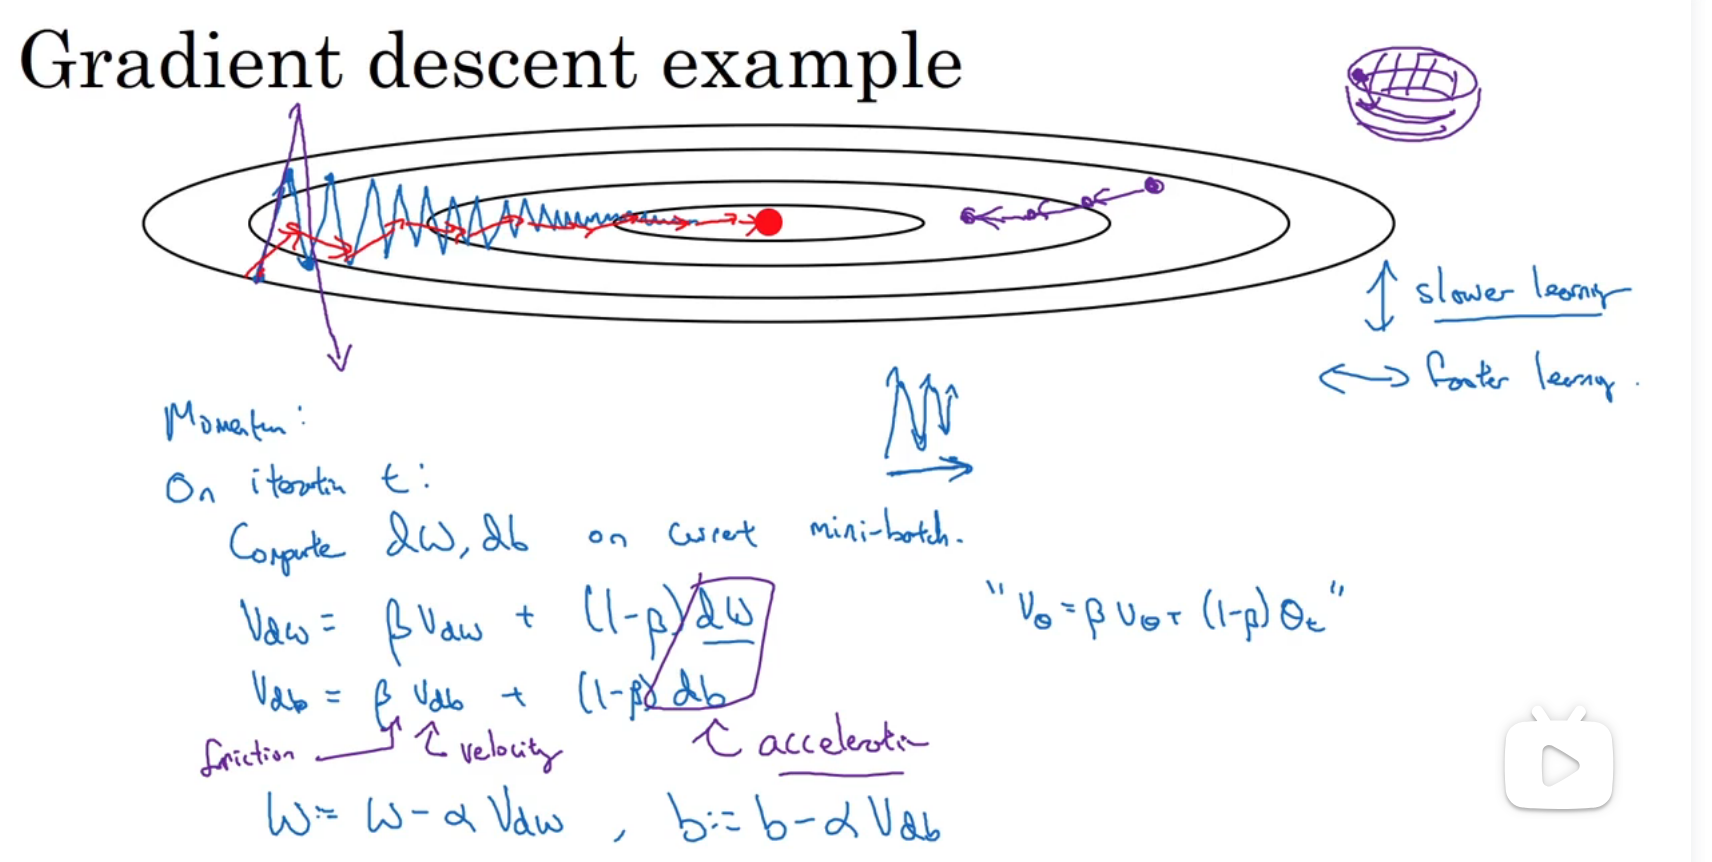 Gradient descent example
↕ slower learning
↔ faster learning.
Momentum:
On iteration t:
Compute dW, db on current mini-batch.
Vdw = βVdw + (1-β)dW
"Vθ = βVθ + (1-β)θt"
Vdb = βVdb + (1-β)db
friction velocity acceleration
W := W - αVdw, b := b - αVdb